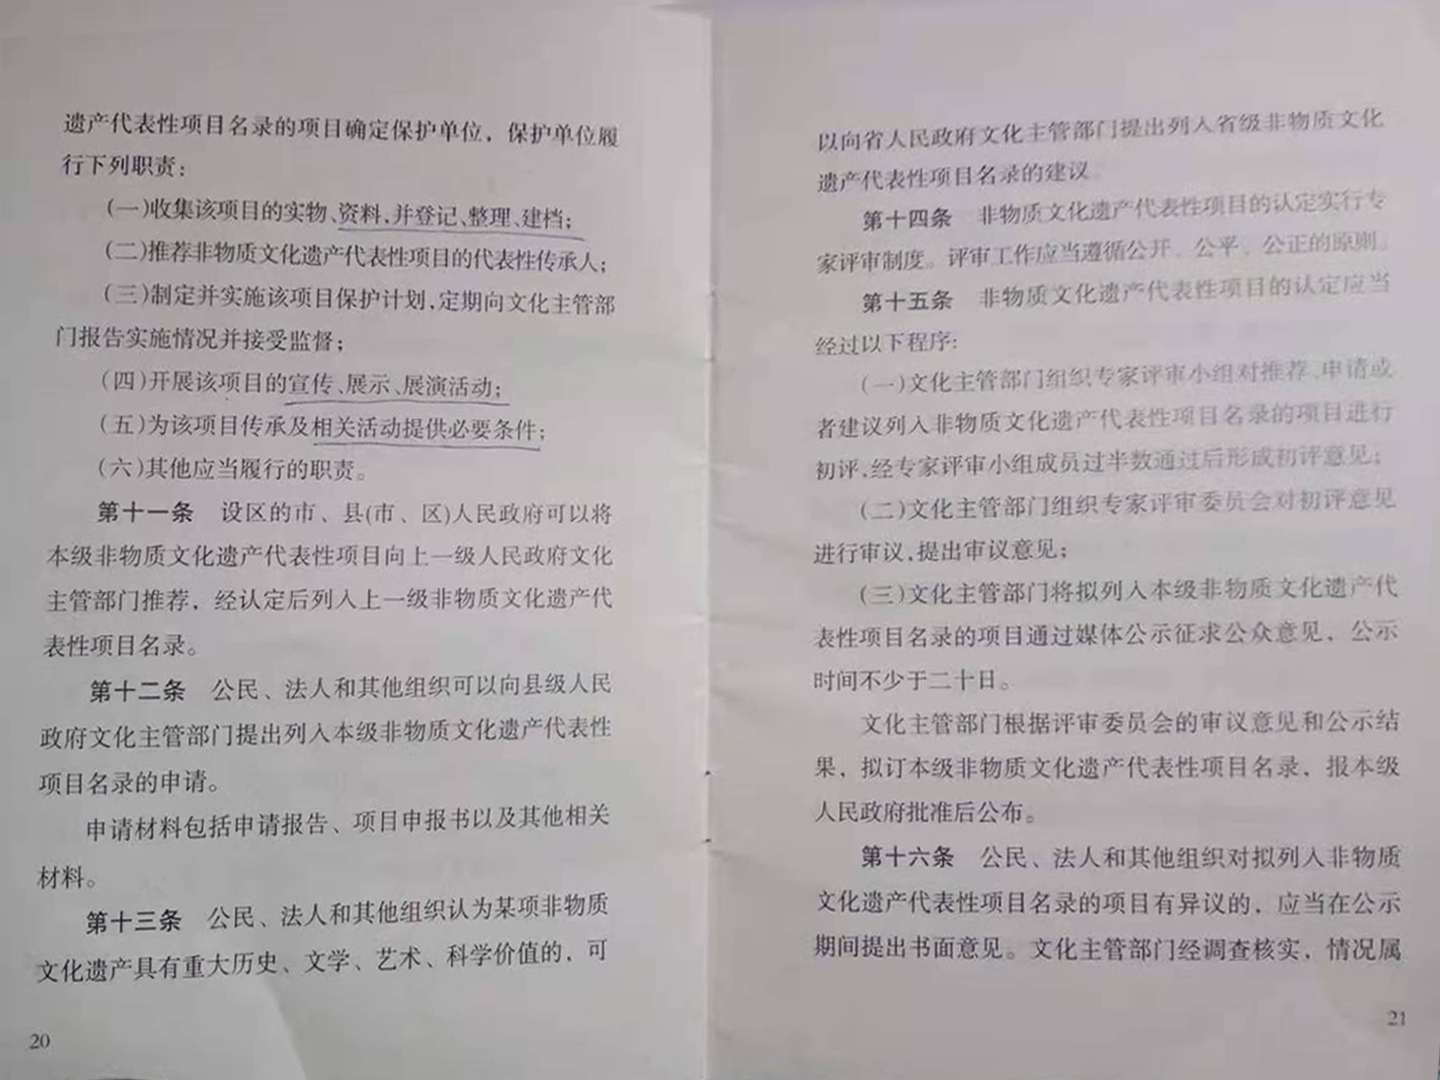 遗产代表性项目名录的项目确定保护单位，保护单位履
行下列职责：
(一)收集该项目的实物、资料,并登记、整理、建档；
(二)推荐非物质文化遗产代表性项目的代表性传承人；
(三)制定并实施该项目保护计划,定期向文化主管部
门报告实施情况并接受监督；
(四)开展该项目的宣传、展示、展演活动；
(五)为该项目传承及相关活动提供必要条件；
(六)其他应当履行的职责。
第十一条 设区的市、县(市、区)人民政府可以将
本级非物质文化遗产代表性项目向上一级人民政府文化
主管部门推荐，经认定后列入上一级非物质文化遗产代
表性项目名录。
第十二条 公民、法人和其他组织可以向县级人民
政府文化主管部门提出列入本级非物质文化遗产代表性
项目名录的申请。
申请材料包括申请报告、项目申报书以及其他相关
材料。
第十三条 公民、法人和其他组织认为某项非物质
文化遗产具有重大历史、文学、艺术、科学价值的，可
20
以向省人民政府文化主管部门提出列入省级非物质文化
遗产代表性项目名录的建议。
第十四条 非物质文化遗产代表性项目的认定实行专
家评审制度。评审工作应当遵循公开、公平、公正的原则。
第十五条 非物质文化遗产代表性项目的认定应当
经过以下程序:
(一)文化主管部门组织专家评审小组对推荐、申请或
者建议列入非物质文化遗产代表性项目名录的项目进行
初评,经专家评审小组成员过半数通过后形成初评意见；
(二)文化主管部门组织专家评审委员会对初评意见
进行审议,提出审议意见；
(三)文化主管部门将拟列入本级非物质文化遗产代
表性项目名录的项目通过媒体公示征求公众意见，公示
时间不少于二十日。
文化主管部门根据评审委员会的审议意见和公示结
果，拟订本级非物质文化遗产代表性项目名录，报本级
人民政府批准后公布。
第十六条 公民、法人和其他组织对拟列入非物质
文化遗产代表性项目名录的项目有异议的，应当在公示
期间提出书面意见。文化主管部门经调查核实，情况属
21